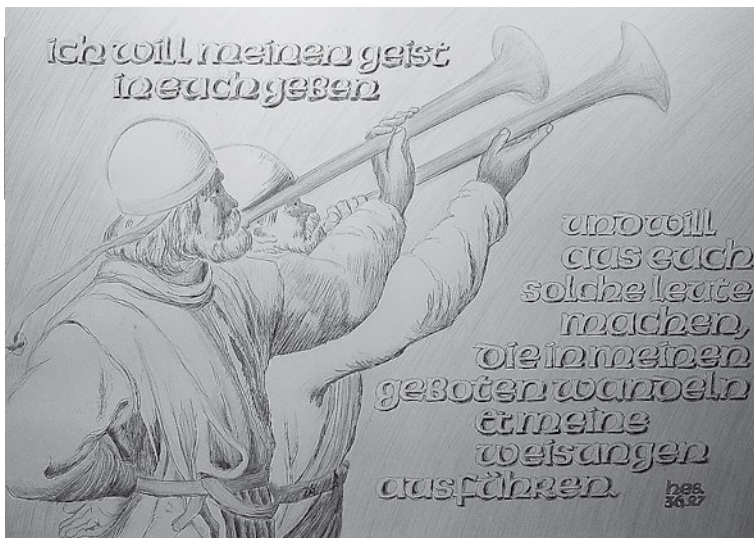 ich will meinen geist
in euch geben
und will
aus euch
solche leute
machen,
die in meinen
geboten wandeln
et meine
weisungen
ausführen.
hes.
36,27